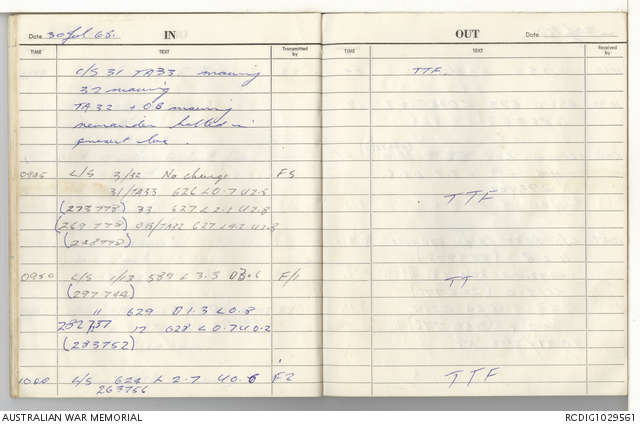 Date 30 Jul 65. IN
TIME TEXT Transmitted by
C/S 31 TA33. moving
32 moving
TA 32 + OB moving
remainder halted in
present loc.
0945 L/S 3/32 No change F5
31/TA33 626 L0.7 U2.5
(273778) 33 627 L2.1 U2.8
(269778) OB/TA32 627 U2.8
0950 L/S 1/13 589 L 3.3 F/1
(297744)
11 629 D1.3 L0.8
282757 17 628 L0.7 U0.2
(283752)
1000 L/S 624 L 2.7 U0.6 F2
263756
OUT Date
TIME TEXT Received by
TTF.
TTF
TT
TTF
AUSTRALIAN WAR MEMORIAL RCDIG1029561